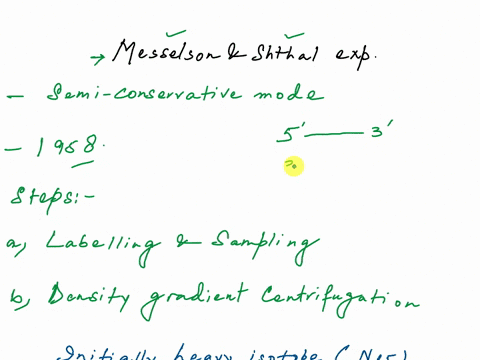 → Messelson & Shthal exp.
- Semi-conservative mode
5' — 3'
- 1958.
Steps:-
a, Labelling & Sampling
b, Density gradient Centrifugation
Initially heavy isotope (N15)